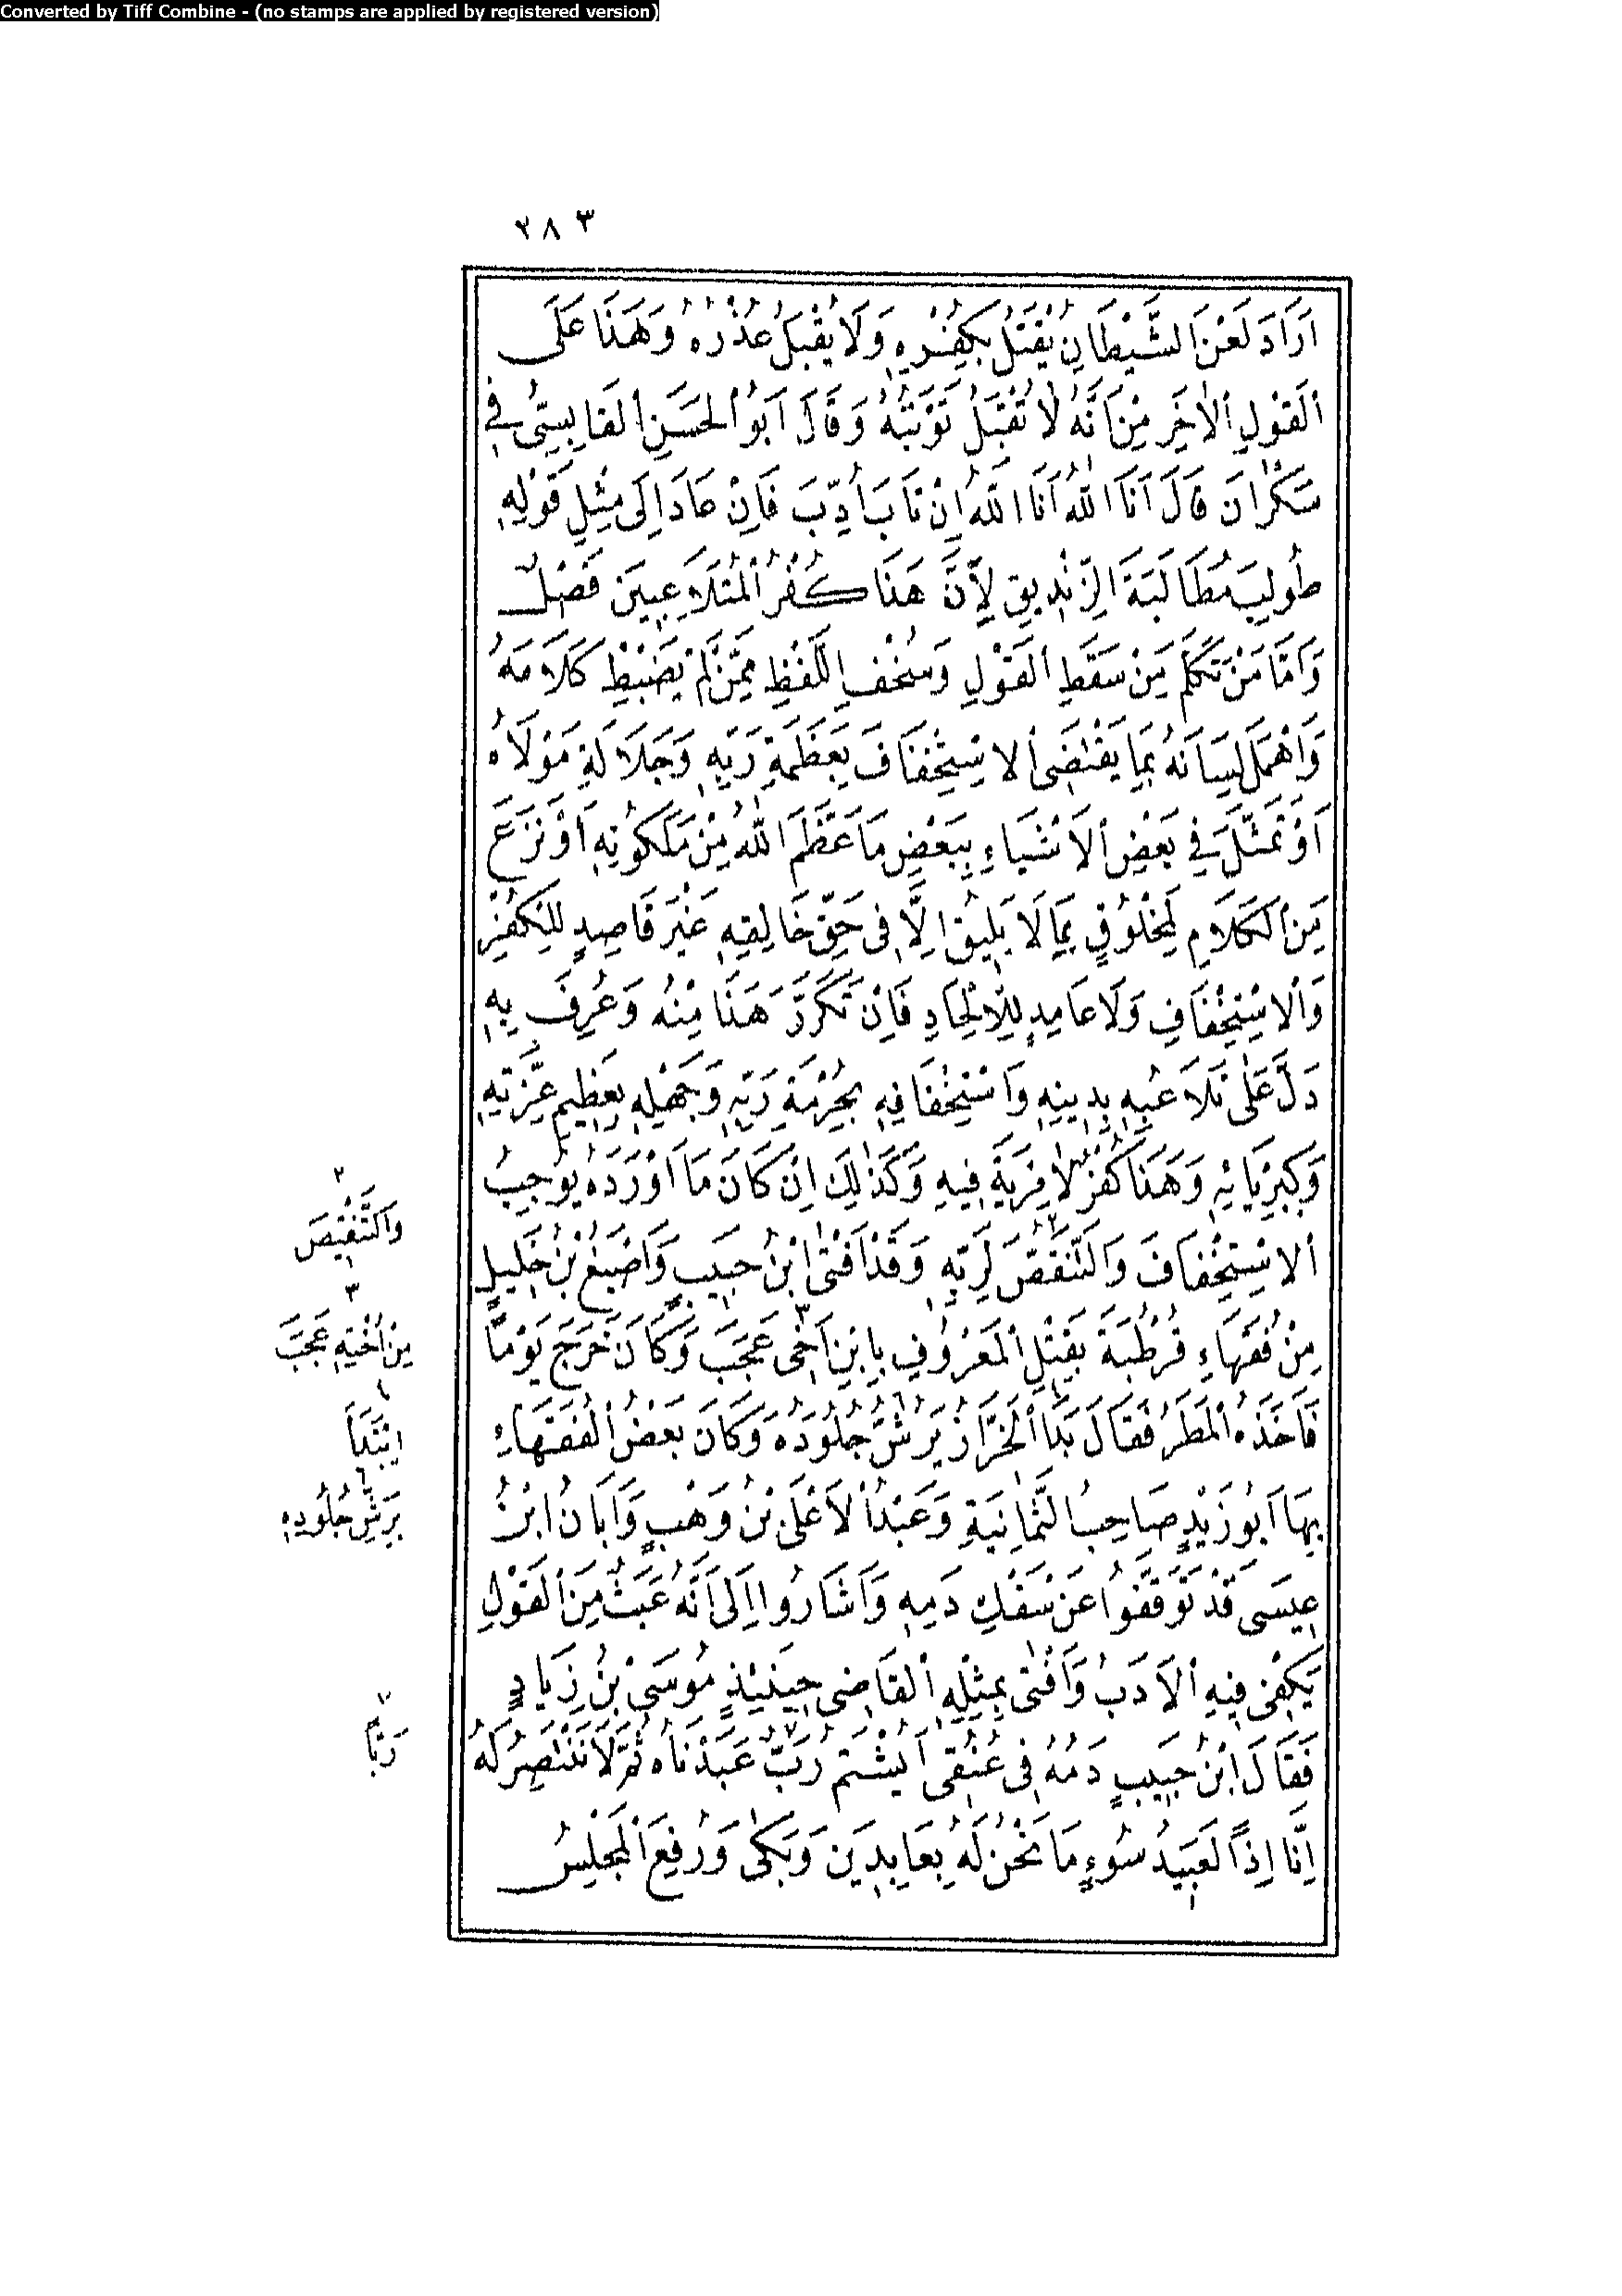 Converted by Tiff Combine - (no stamps are applied by registered version)
٢٨٣
اَرَادَ لَعْنَ الشَّيْطَانِ يُقْتَلُ بِكُفْرِهِ وَلَا يُقْبَلُ عُذْرُهُ وَهَذَا عَلَى
اْلقَوْلِ اْلآخَرِ مِنْ اَنَّهُ لَا تُقْبَلُ تَوْبَتُهُ وَقَالَ اَبُو اْلحَسَنِ اْلقَابِسِىُّ فِى
سَكْرَانَ قَالَ اَنَا اللّٰهُ اَنَا اللّٰهُ اِنْ تَابَ اُدِّبَ فَاِنْ عَادَ اِلَى مِثْلِ قَوْلِهِ
طُولِبَ مُطَالَبَةَ الزِّنْدِيقِ لِاَنَّ هَذَا كُفْرُ اْلمُتَلَاعِبِينَ فَصْلٌ
وَاَمَّا مَنْ تَكَلَّمَ مِنْ سَقَطِ اْلقَوْلِ وَسُخْفِ اللَّفْظِ مِمَّنْ لَمْ يَضْبِطْ كَلَامَهُ
وَاَهْمَلَ لِسَانَهُ بِمَا يَقْتَضِى اْلاِسْتِخْفَافَ بِعَظَمَةِ رَبِّهِ وَجَلَالَةِ مَوْلَاهُ
اَوْ تَمَثَّلَ فِى بَعْضِ اْلاَشْيَاءِ بِبَعْضِ مَا عَظَّمَ اللّٰهُ مِنْ مَلَكُوتِهِ اَوْ نَزَعَ
مِنَ اْلكَلَامِ لِمَخْلُوقٍ بِمَا لَا يَلِيقُ اِلَّا فِى حَقِّ خَالِقِهِ غَيْرَ قَاصِدٍ لِلْكُفْرِ
وَاْلاِسْتِخْفَافِ وَلَا عَامِدٍ لِلْاِلْحَادِ فَاِنْ تَكَرَّرَ هَذَا مِنْهُ وَعُرِفَ بِهِ
دَلَّ عَلَى تَلَاعُبِهِ بِدِينِهِ وَاسْتِخْفَافِهِ بِحُرْمَةِ رَبِّهِ وَجَهْلِهِ بِعَظِيمِ عِزَّتِهِ
وَكِبْرِيَائِهِ وَهَذَا كُفْرٌ لَا مِرْيَةَ فِيهِ وَكَذَلِكَ اِنْ كَانَ مَا اَوْرَدَهُ يُوجِبُ
اْلاِسْتِخْفَافَ وَالتَّنَقُّصَ ٢ لِرَبِّهِ وَقَدْ اَفْتَى ابْنُ حَبِيبٍ وَاَصْبَغُ بْنُ خَلِيلٍ
مِنْ فُقَهَاءِ قُرْطُبَةَ بِقَتْلِ اْلمَعْرُوفِ بِابْنِ اَخِى ٣ عَجَبَ وَكَانَ خَرَجَ يَوْمًا
فَاَخَذَهُ اْلمَطَرُ فَقَالَ بَدَا ٤ اْلخَرَّازُ يَرُشُّ ٦ جُلُودَهُ وَكَانَ بَعْضُ اْلفُقَهَاءِ
بِهَا اَبُو زَيْدٍ صَاحِبُ الثَّمَانِيَةِ وَعَبْدُ اْلاَعْلَى بْنُ وَهْبٍ وَاَبَانُ ابْنُ
عِيسَى قَدْ تَوَقَّفُوا عَنْ سَفْكِ دَمِهِ وَاَشَارُوا اِلَى اَنَّهُ عَبَثٌ مِنَ اْلقَوْلِ
يَكْفِى فِيهِ اْلاَدَبُ وَاَفْتَى بِمِثْلِهِ اْلقَاضِى حِينَئِذٍ مُوسَى بْنُ زِيَادٍ
فَقَالَ ابْنُ حَبِيبٍ دَمُهُ فِى عُنُقِى اَيُشْتَمُ رَبٌّ ٧ عَبَدْنَاهُ ثُمَّ لَا نَنْتَصِرُ لَهُ
اِنَّا اِذًا لَعَبِيدُ سُوءٍ مَا نَحْنُ لَهُ بِعَابِدِينَ وَبَكَى وَرُفِعَ اْلمَجْلِسُ
٢
وَالتَّنْقِيصَ
٣
مِنْ اُخْتِهِ عَجَبَ
٤
ابْتَدَأَ
٦
بِرَشِّ جُلُودِهِ
٧
رَبًّا